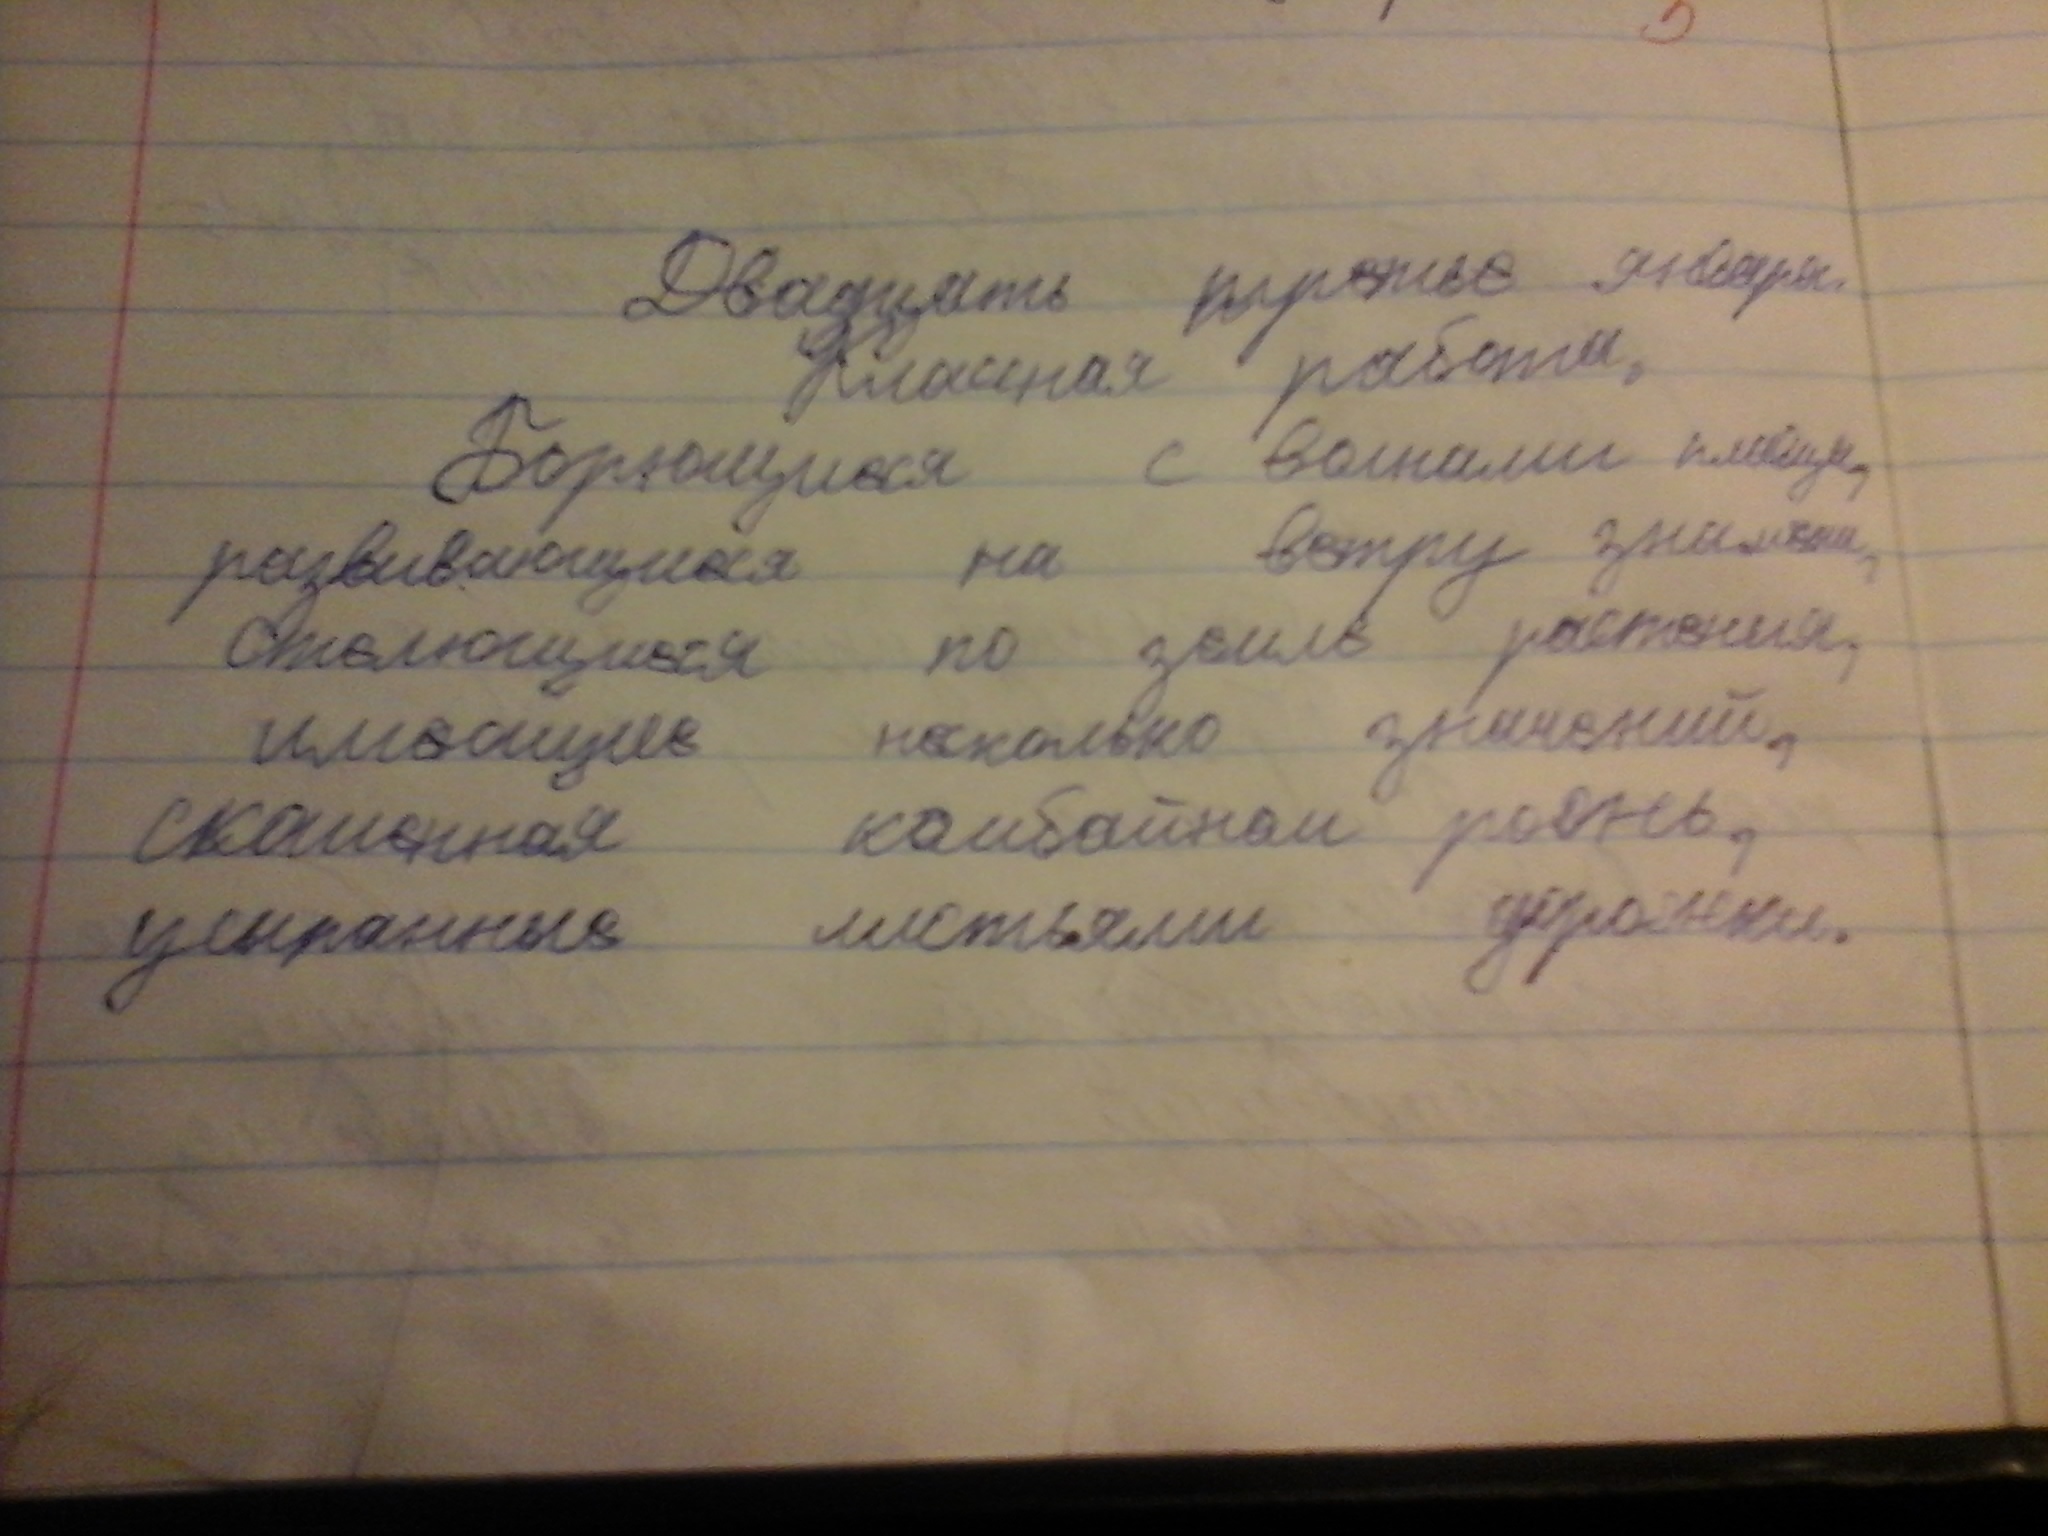 Двадцать третье января.
Классная работа.
Борющиеся с волнами пловцы,
развивающиеся на ветру знамена,
Стелющиеся по земле растения,
имеющие несколько значений,
скошенная комбайном рожь,
усыпанные листьями дорожки.